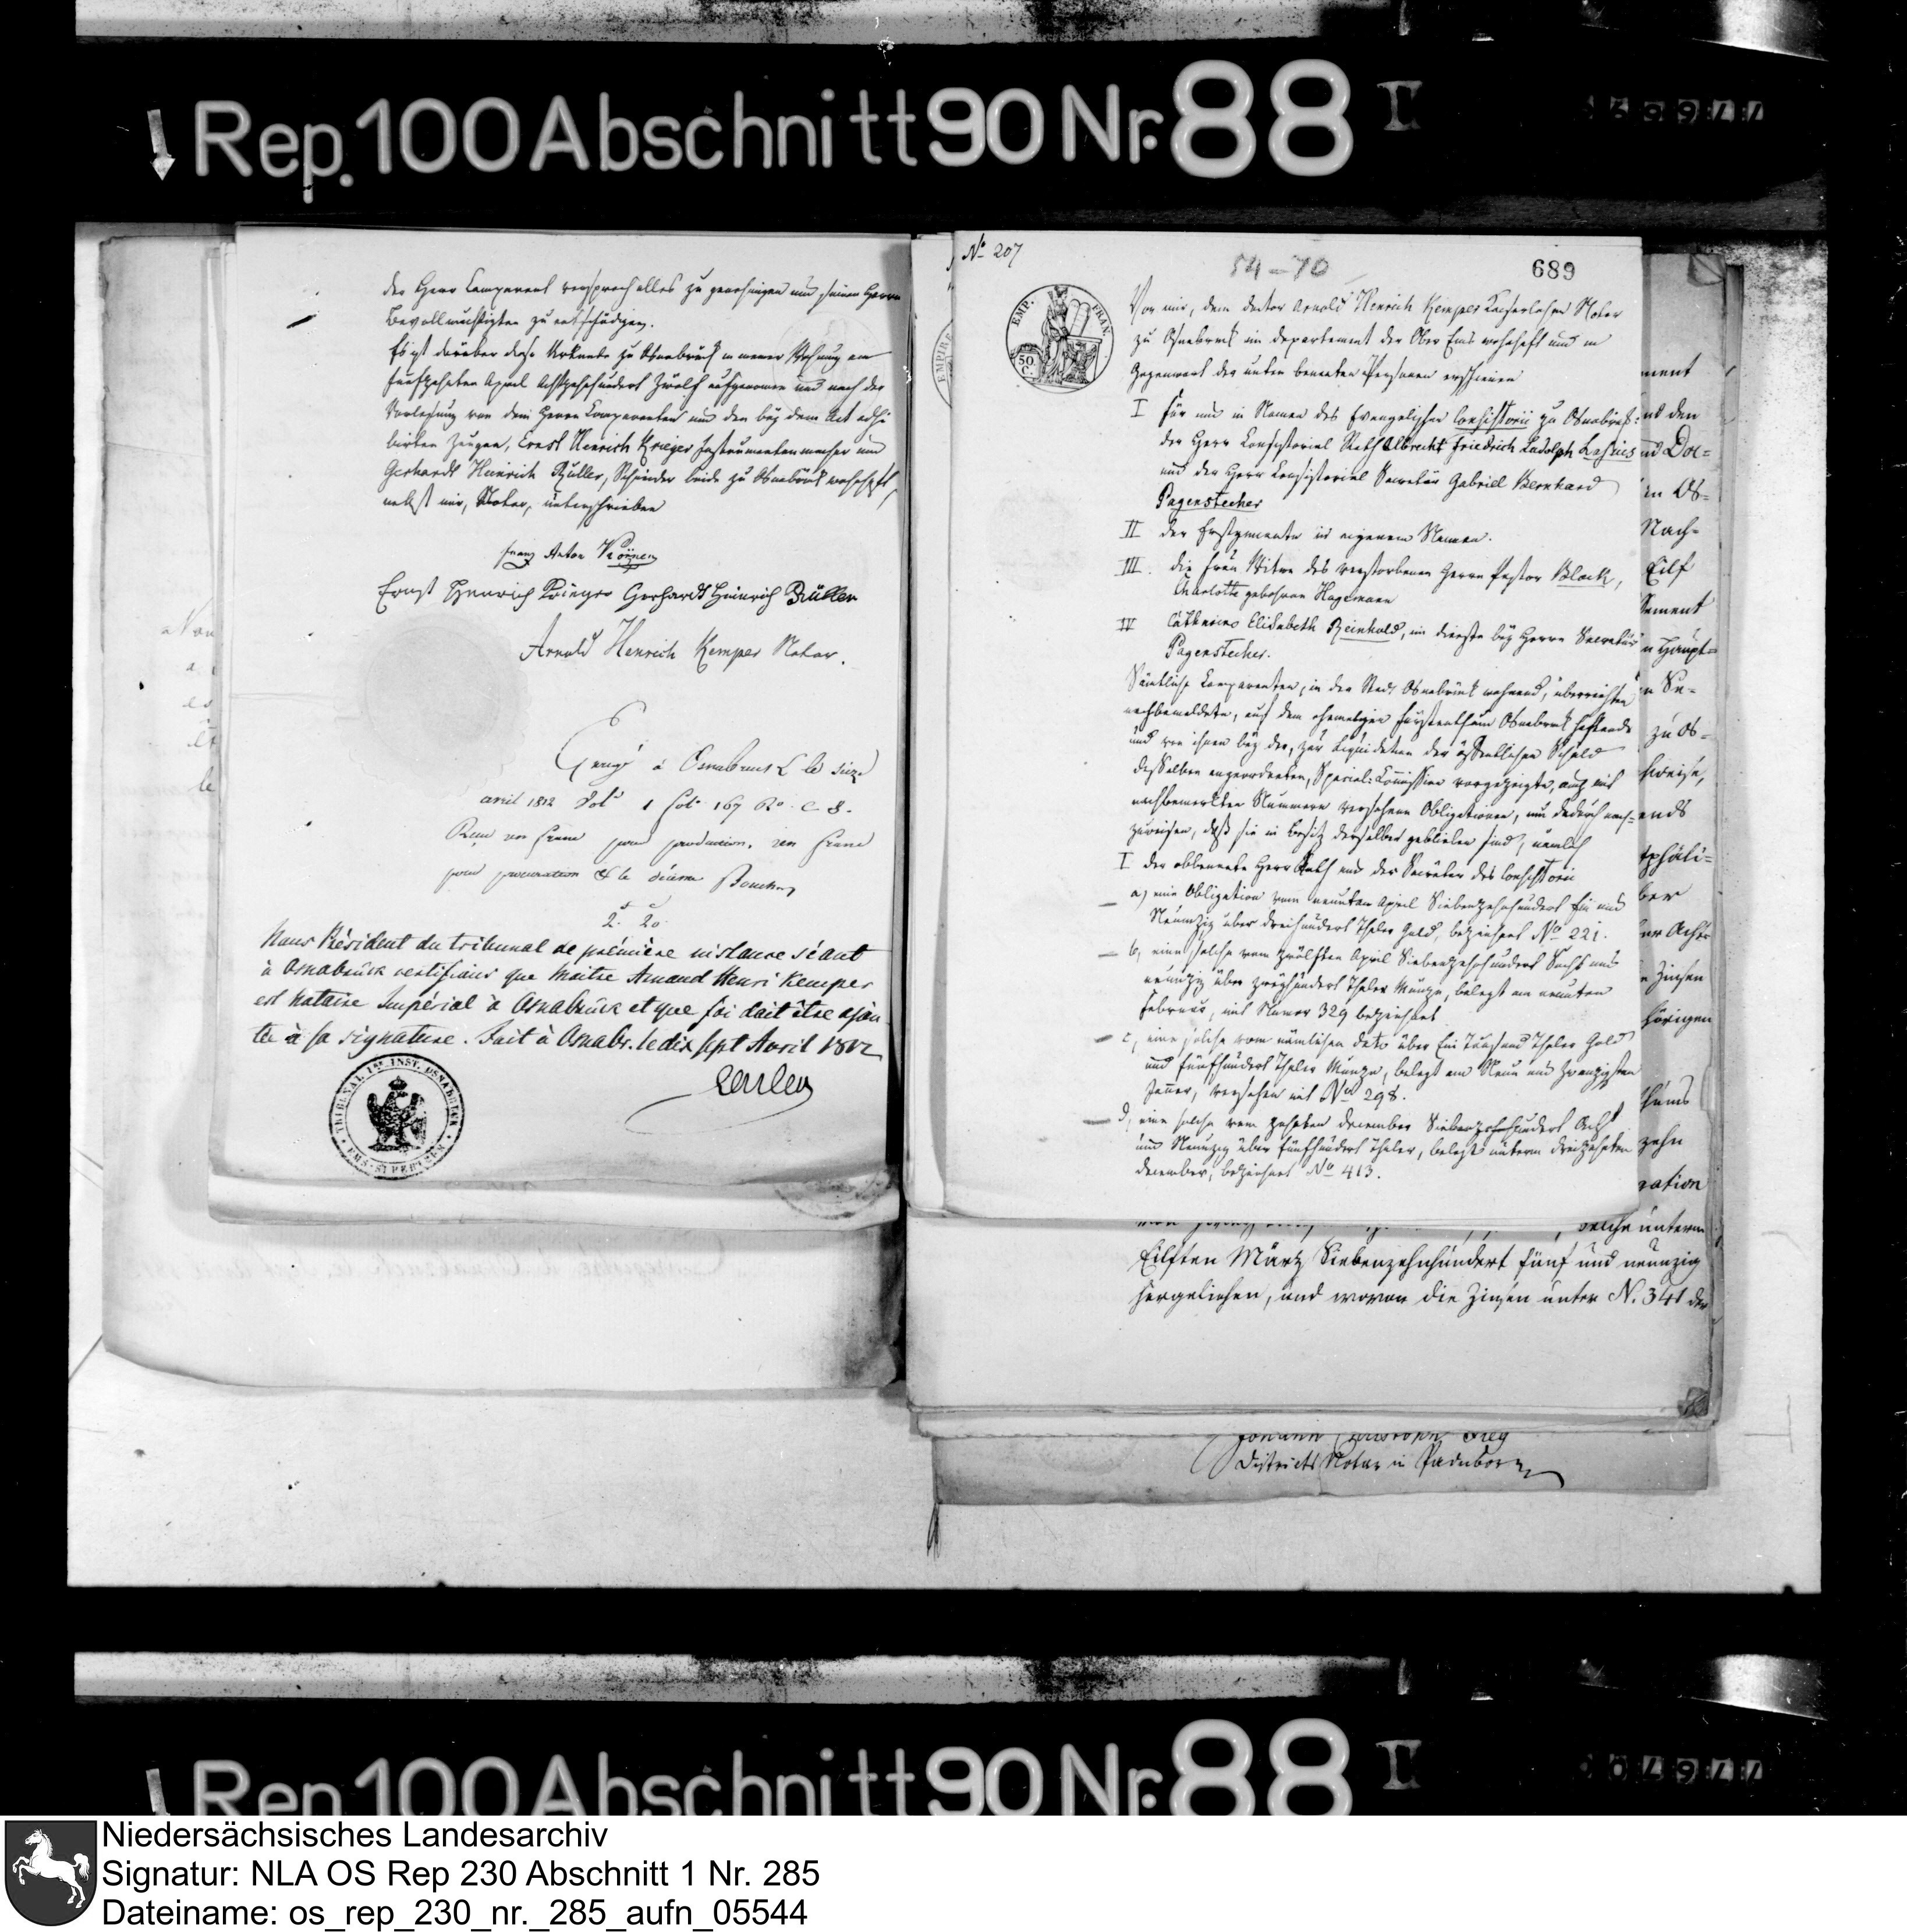 Rep. 100 Abschnitt 90 Nr. 88 I
der Herr Comparent versprach alles zu genehmigen und seinen Herrn
Bevollmächtigten zu entschädigen.
Es ist darüber diese Urkunde zu Osnabrück in meiner Wohnung am
funfzehnten April Achtzehnhundert Zwölf aufgenommen und nach der
Vorlesung von dem Herrn Comparenten und den bey dem Act adhi
birten Zeugen, Ernst Henrich Krieger Instrumentenmacher und
Gerhardt Heinrich Büller, Schneider beide zu Osnabrück wohnhaft,
nebst mir, Notar, unterschrieben
Franz Anton
Ernst Henrich Krieger Gerhardt Heinrich Büller
Arnold Henrich Kemper Notar.
à Osnabruck le
avril 1812 fol. 167 Ro. C. 8.
pour procuration
2. 20
Nous Président du tribunal de première instance séant
à Osnabrück certifions que Maitre Arnaud Henri Kemper
est Notaire Impérial à Osnabrück et que foi doit être ajou
tée à sa signature. Fait à Osnabr. le dix sept Avril 1812
TRIBUNAL 1RE INST. OSNABRUCK
No 207
54-70
689
EMP. FRAN.
50 C.
Vor mir, dem Doctor Arnold Henrich Kemper Kaiserlichen Notar
zu Osnabrück im Departement der Ober Ems wohnhaft und in
Gegenwart der unten benannten Personen erschienen
I für und in Namen des Evangelischen Consistorii zu Osnabrück:
der Herr Consistorial Rath Albrecht Friedrich Ludolph Lasius
und der Herr Consistorial Secretär Gabriel Bernhard
Pagenstecher
II der Erstgenannte in eigenem Namen.
III. die Frau Witwe des verstorbenen Herrn Pastor Block,
Charlotte geborene Hagemann
IV Catharina Elisabeth Reinhold, im Dienste bey Herrn Secretär
Pagenstecher.
Sämtliche Comparenten, in der Stadt Osnabrück wohnend, überreichten
nachbemeldete, auf dem ehemaligen Fürstenthum Osnabrück haftende
und von ihnen bey der, zur Liquidation der öffentlichen Schuld
desselben angeordneten, Special-Commission vorgezeigte, auch mit
nachbemerkten Nummern versehene Obligationen, um dadurch nach-
zuweisen, daß sie in Besitz derselben geblieben sind, nemlich
I der obbenannte Herr Rath und der Secretär des Consistorii
a) eine Obligation vom neunten April Siebenzehnhundert Ein und
Neunzig über dreihundert Thaler Gold, bezeichnet No 221.
b, eine solche vom zwölften April Siebenzehnhundert Sechs und
neunzig über zweyhundert Thaler Münze, belegt am neunten
Februar, mit Numer 329 bezeichnet
c, eine solche vom nämlichen dato über Ein Tausend Thaler Gold
und fünfhundert Thaler Münze, belegt am Neun und Zwanzigsten
Jenner, versehen mit No 298.
d, eine solche vom zehnten December Siebenzehnhundert Acht
und Neunzig über fünfhundert Thaler, belegt unterm dreizehnten
December, bezeichnet No 413.
ment
und den
und Doc=
in Os-
Nach-
Eilf
sement
n Haupt=
zu Os-
hweise,
ends
tphäli=
ber
er Acht-
n Zinsen
hörigen
thums
zehn
gation
welche unterm
Eilften Märtz Siebenzehnhundert fünf und neunzig
hergeliehen, und wovon die Zinsen unter N. 341 der
Johann Christoph Frey
Districts Notar in Paderborn
Rep. 100 Abschnitt 90 Nr. 88 I
Niedersächsisches Landesarchiv
Signatur: NLA OS Rep 230 Abschnitt 1 Nr. 285
Dateiname: os_rep_230_nr._285_aufn_05544